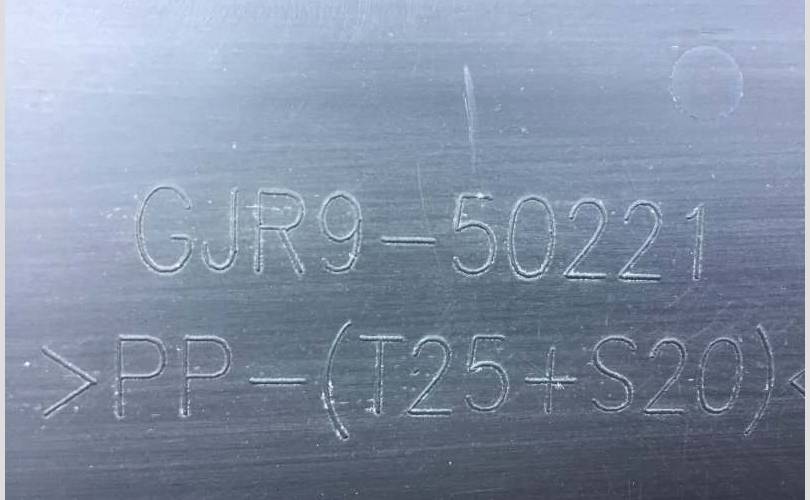 GJR9-50221
>PP-(T25+S20)<